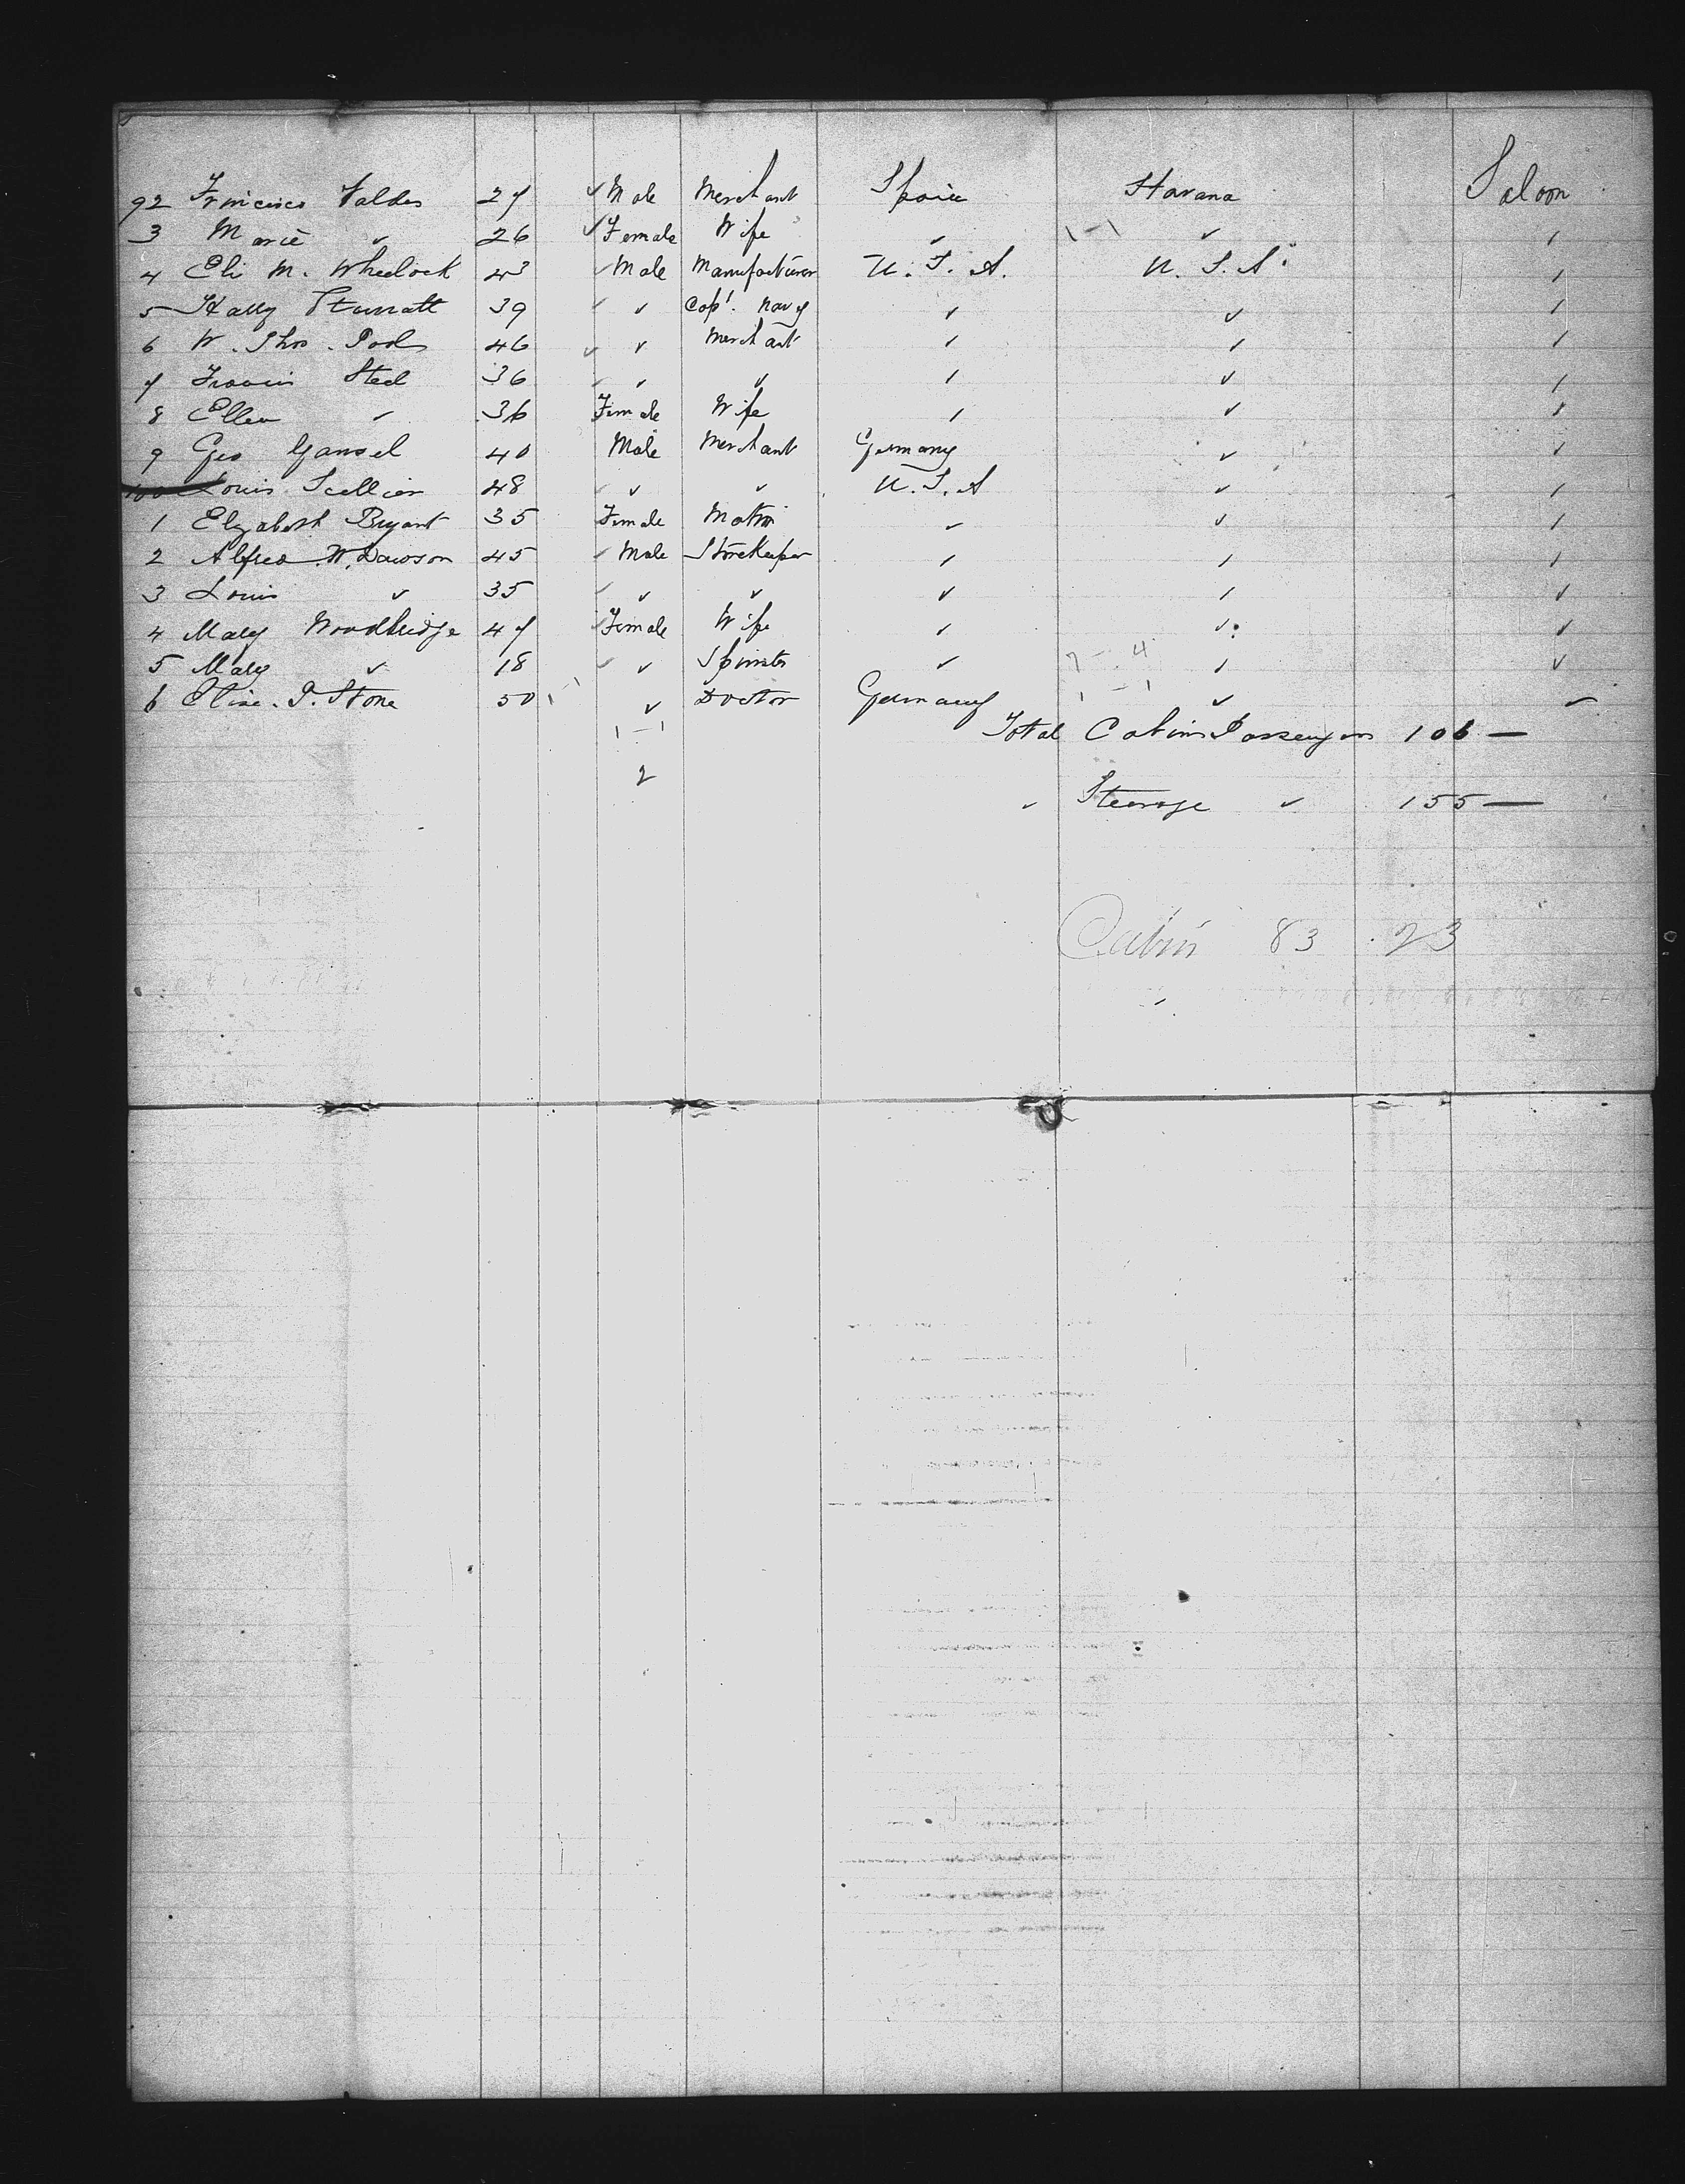 92 Francisco Valdes 27 ✓ Male Merchant Spain Havana Saloon
3 Marie ✓ 26 ✓ Female Wife ✓ 1-1 ✓ ✓
4 Eli M. Wheelock 43 ✓ Male Manufacturer U. S. A. U. S. A. ✓
5 39 ✓ ✓ Capt. Navy ✓ ✓ ✓
6 W. Thos. 46 ✓ ✓ Merchant ✓ ✓ ✓
7 Francis Steel 36 ✓ ✓ ✓ ✓ ✓ ✓
8 Ellen ✓ 36 Female Wife ✓ ✓ ✓
9 Geo Gansel 40 Male Merchant Germany ✓ ✓
100 Louis 48 ✓ ✓ ✓ U. S. A ✓ ✓
1 Elizabeth Bryant 35 Female Matron ✓ ✓ ✓
2 Alfred W. Dawson 45 ✓ Male Storekeeper ✓ ✓ ✓
3 Louis ✓ 35 ✓ ✓ ✓ ✓ ✓ ✓
4 Mary Woodbridge 47 ✓ Female Wife ✓ ✓ ✓
5 Mary ✓ 18 ✓ ✓ Spinster ✓ 7-4 ✓ ✓
6 P. Stone 50 1-1 ✓ Doctor Germany 1-1 ✓ ✓
1-1 Total Cabin Passengers 106 —
2
✓ Steerage ✓ 155 —
Cabin 83 23